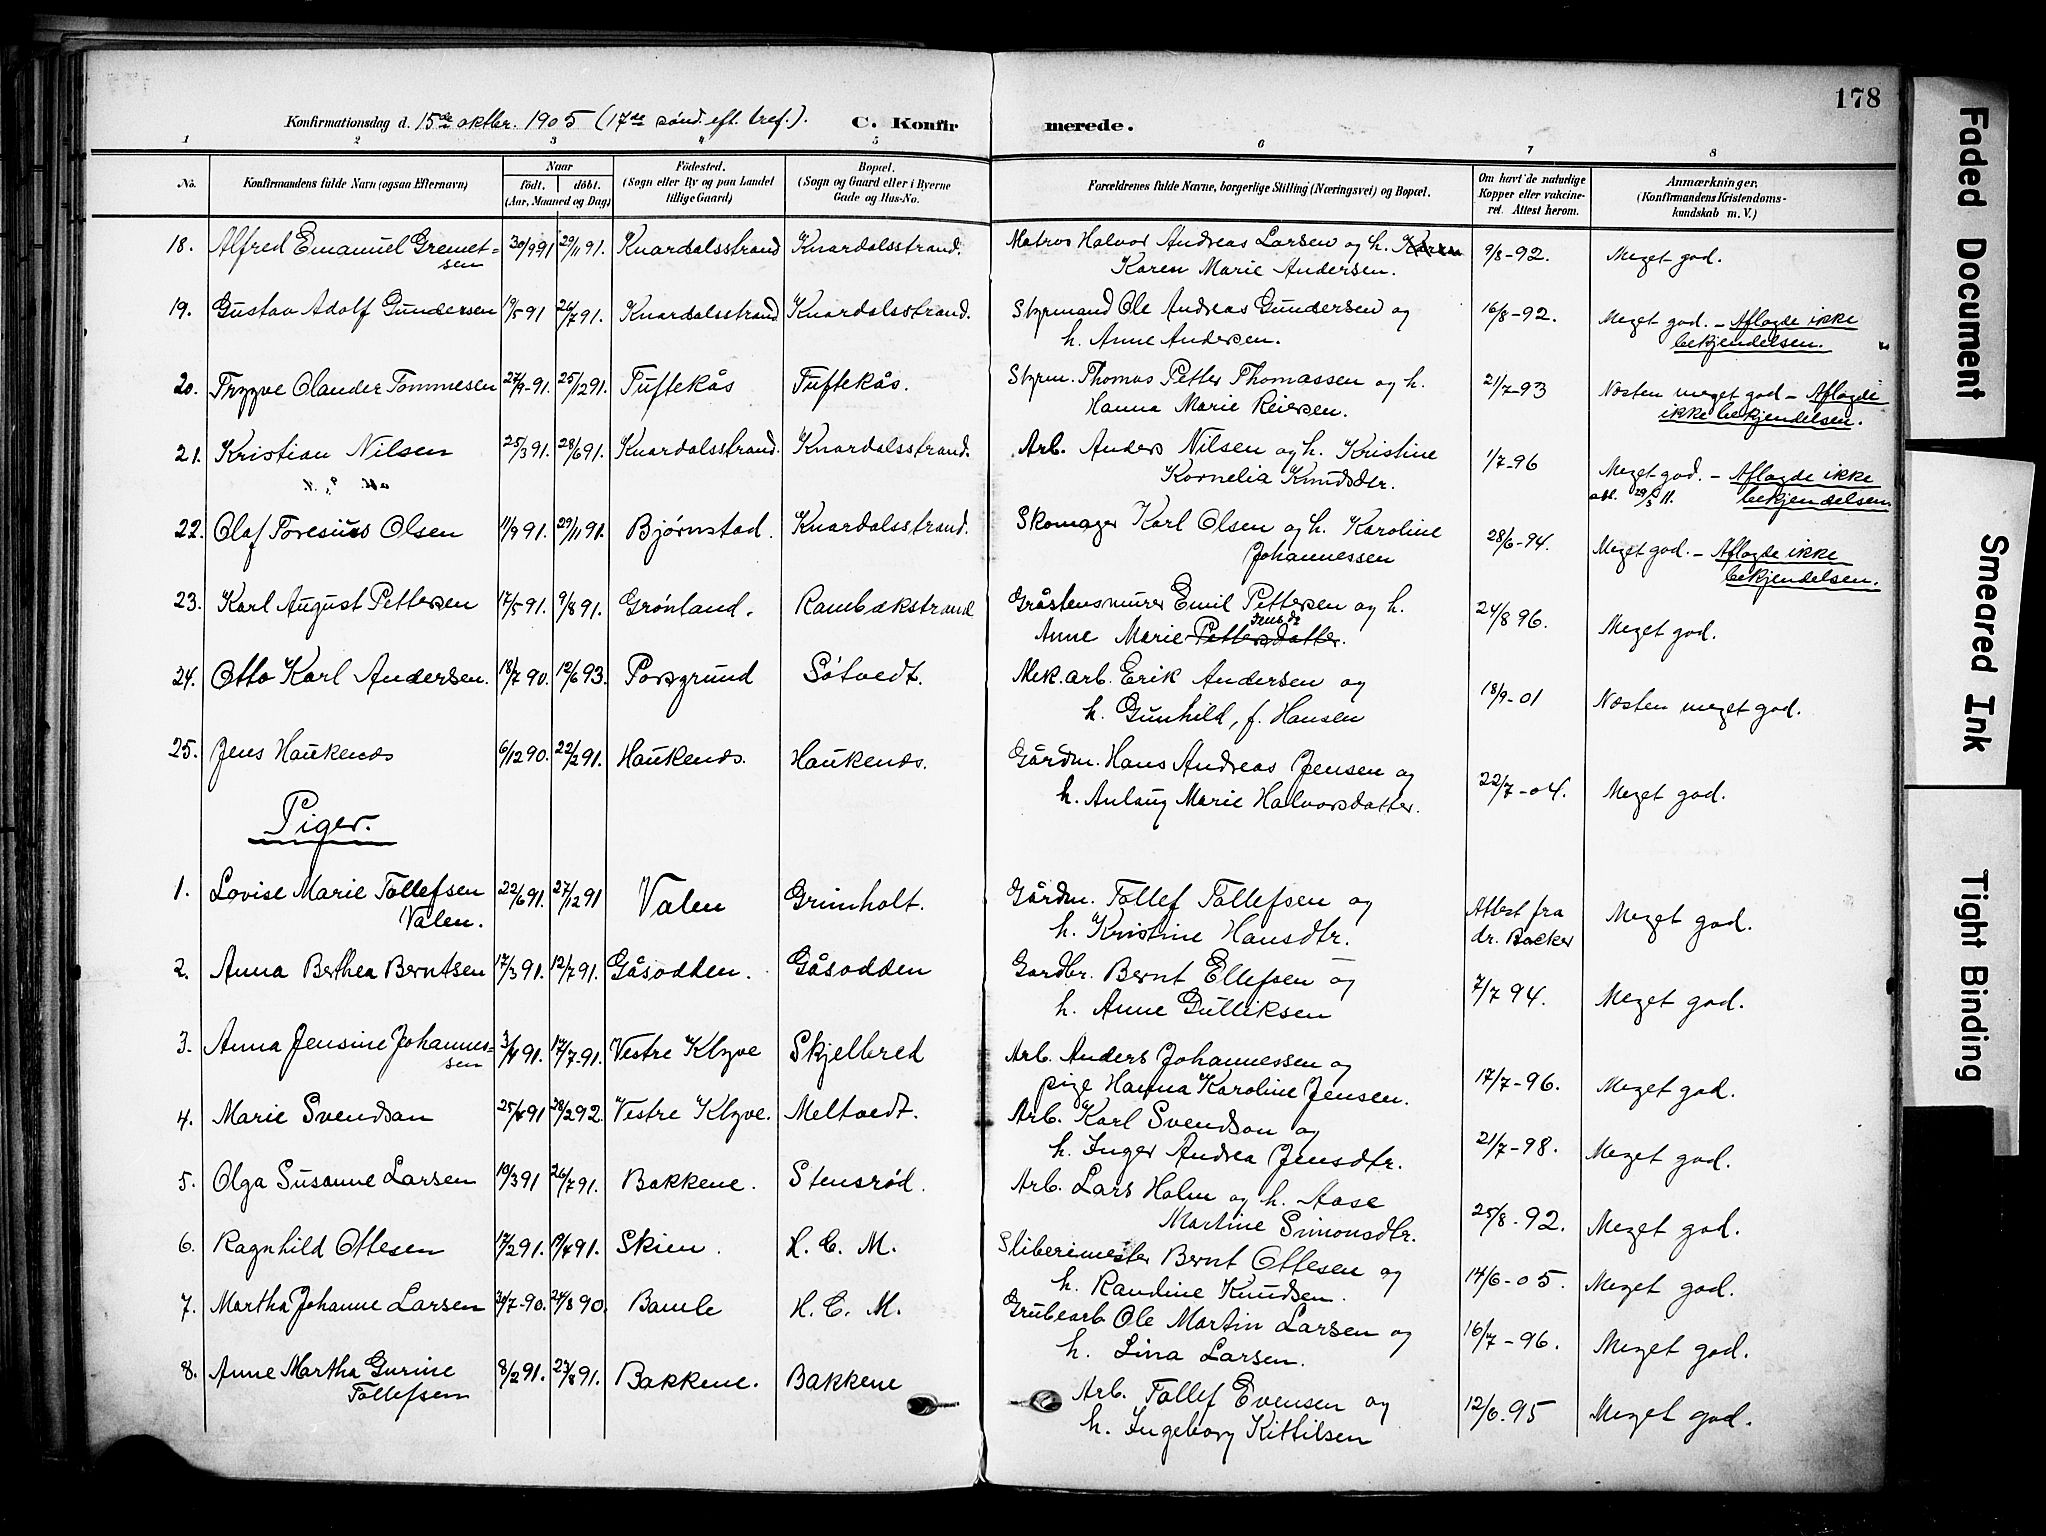 178
Konfirmationsdag d. 15de oktbr. 1905 (17de sönd. eft. tref.). C. Konfirmerede.
1 2 3 4 5 6 7 8
No. Konfirmandens fulde Navn (ogsaa Efternavn) Naar født. døbt. (Aar, Maaned og Dag) Fødested. (Sogn eller By og paa Landet tillige Gaard) Bopæl. (Sogn og Gaard eller i Byerne Gade og Hus-No. Forældrenes fulde Navne, borgerlige Stilling (Næringsvei) og Bopæl. Om havt de naturlige Kopper eller vakcineret. Attest herom. Anmærkninger. (Konfirmandens Kristendomskundskab m. V.)
18. Alfred Emanuel Gremetsen 30/9 91 29/11 91. Knardalsstrand Knardalsstrand. Matros Halvor Andreas Larsen og h. Karen 9/8-92. Meget god.
Karen Marie Andersen.
19. Gustav Adolf Gundersen 19/5 91 26/7 91. Knardalsstrand Knardalsstrand. Styrmand Ole Andreas Gundersen og 16/8-92. Meget god. – Aflagde ikke
h. Anne Andersen. bekjendelsen.
20. Tryggve Olander Tommesen 27/9-91. 25/12 91. Tuftekås Tuftekås. Styrm. Thomas Petter Thomassen og h. 21/7-93 Næsten meget god – Aflagde
Hanna Marie Reiersen. ikke bekjendelsen.
21. Kristian Nilsen 25/3 91. 28/6 91. Knardalsstrand. Knardalsstrand. Arb. Anders Nilsen og h. Kristine 1/7-96 Meget god. – Aflagde ikke
Kornelia Knudsdtr. att. 29/5 11. bekjendelsen
22. Olaf Toresius Olsen 11/9 91. 29/11 91. Bjørnstad. Knardalsstrand. Skomager Karl Olsen og h. Karoline 28/6-94. Meget god. – Aflagde ikke
Johannessen bekjendelsen.
23. Karl August Pettersen 17/5 91. 9/8 91. Grønland. Rambækstrand Gråstensmurer Emil Pettersen og h. 24/8 96. Meget god.
Anne Marie Pettersdatter.
24. Otto Karl Andersen. 18/7 90. 12/6 93. Porsgrund Søtvedt. Mek. arb. Erik Andersen og 18/9-01 Næsten meget god.
h. Gunhild, f. Hansen
25. Jens Haukenæs 6/12 90. 22/2 91. Haukenæs. Haukenæs. Gårdm. Hans Andreas Jensen og 22/7-04. Meget god.
h. Anlaug Marie Halvorsdatter.
Piger.
1. Lovise Marie Tollefsen 22/6 91. 27/12 91 Valen Grimholt. Gårdm. Tollef Tollefsen og Attest fra Meget god.
Valen. h. Kristine Hansdtr. dr. Backer
2. Anna Berthea Berntsen 17/3 91. 12/7 91. Gåsodden. Gåsodden Gardbr. Bernt Ellefsen og 7/7 94. Meget god.
h. Anne Gulliksen
3. Anna Jensine Johannessen 3/4 91. 12/7-91. Vestre Klyve Skjelbred Arb. Anders Johannessen og 17/7-96. Meget god.
pige Hanna Karoline Jensen.
4. Marie Svendson 25/4 91 28/2 92. Vestre Klyve. Meltvedt. Arb. Karl Svendson og 21/7-98. Meget god.
h. Inger Andrea Jensdtr.
5. Olga Susanne Larsen 10/3 91 26/7 91. Bakkene. Stensrød. Arb. Lars Holm og h. Aase 25/8-92. Meget god.
Martine Simonsdtr.
6. Ragnhild Ottesen 17/2 91. 19/4 91. Skien. H. C. M. Sliberimester Bernt Ottesen og 14/6-05. Meget god.
h. Randine Knudsen.
7. Martha Johanne Larsen 30/7-90. 24/8 90. Bamle H. C. M. Grubearb Ole Martin Larsen og 16/7-96. Meget god.
h. Lina Larsen.
8. Anne Martha Gurine 8/2 91. 23/8 91. Bakkene. Bakkene Arb. Tollef Evensen og 12/6.95 Meget god.
Tollefsen h. Ingeborg Kittilsen
Faded Document
Smeared Ink
Tight Binding